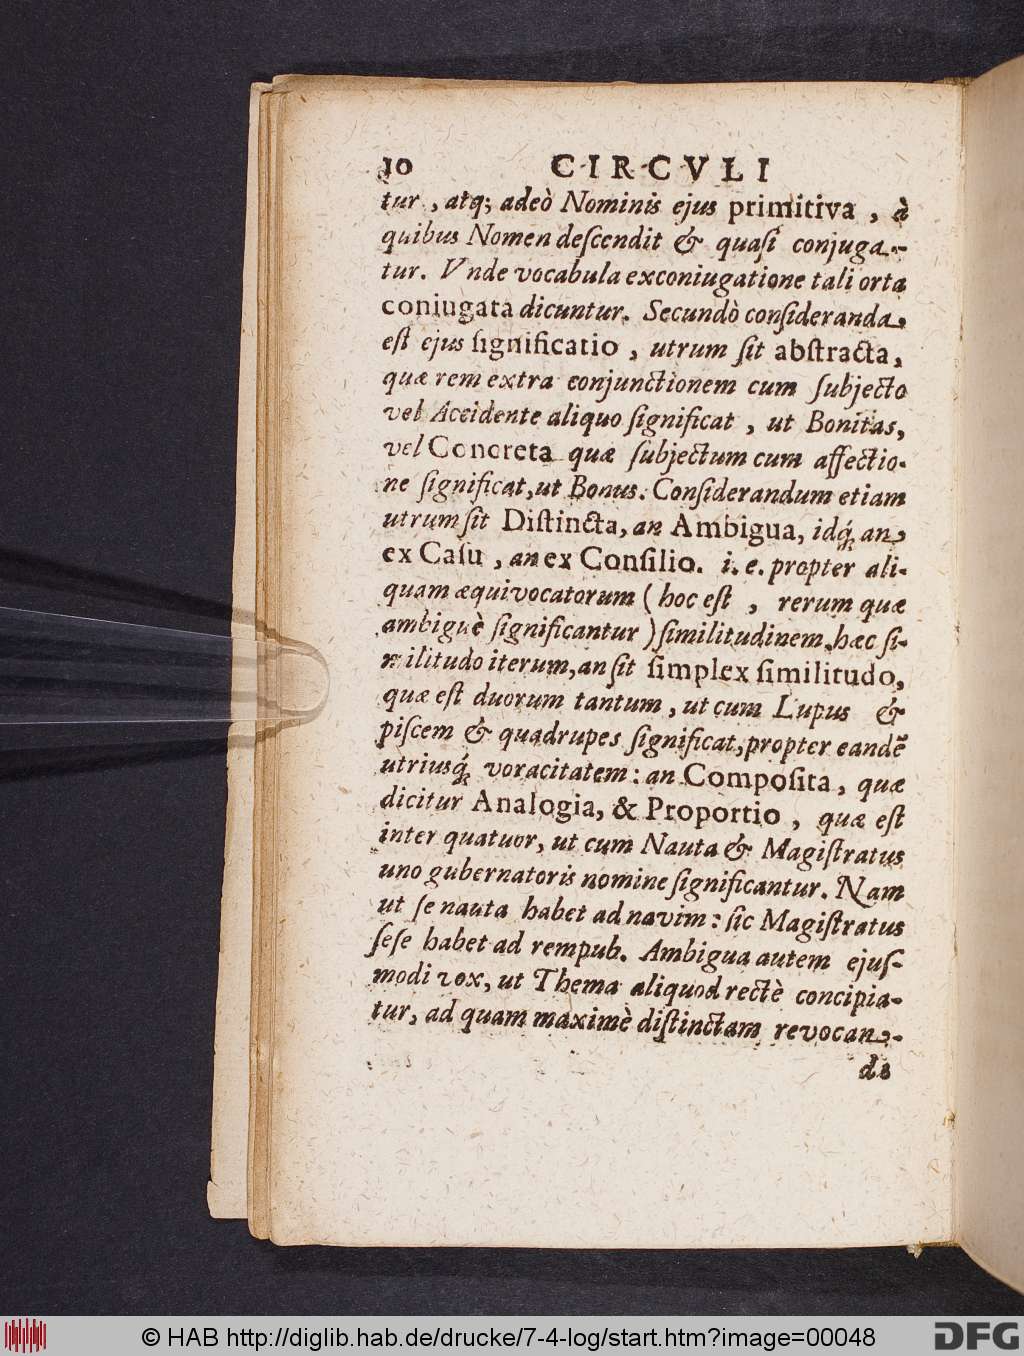 10 CIRCVLI
tur, atq; adeò Nominis ejus primitiva, à
quibus Nomen deſcendit & quaſi conjuga-
tur. Vnde vocabula exconiugatione tali orta
coniugata dicuntur. Secundò conſideranda,
eſt ejus ſignificatio, utrum ſit abſtracta,
quæ rem extra conjunctionem cum ſubjecto
vel Accidente aliquo ſignificat, ut Bonitas,
vel Concreta quæ ſubjectum cum affectio-
ne ſignificat, ut Bonus. Conſiderandum etiam
utrum ſit Diſtincta, an Ambigua, idq́; an
ex Caſu, an ex Conſilio. i. e. propter ali-
quam æquivocatorum (hoc eſt, rerum quæ
ambiguè ſignificantur) ſimilitudinem, hæc ſi-
militudo iterum, an ſit ſimplex ſimilitudo,
quæ eſt duorum tantum, ut cum Lupus &
piſcem & quadrupes ſignificat, propter eandẽ
utriusq́; voracitatem: an Compoſita, quæ
dicitur Analogia, & Proportio, quæ eſt
inter quatuor, ut cum Nauta & Magiſtratus
uno gubernatoris nomine ſignificantur. Nam
ut ſe nauta habet ad navim: ſic Magiſtratus
ſeſe habet ad rempub. Ambigua autem ejuſ-
modi vox, ut Thema aliquod rectè concipia-
tur, ad quam maximè diſtinctam revocan-
da
© HAB http://diglib.hab.de/drucke/7-4-log/start.htm?image=00048
DFG